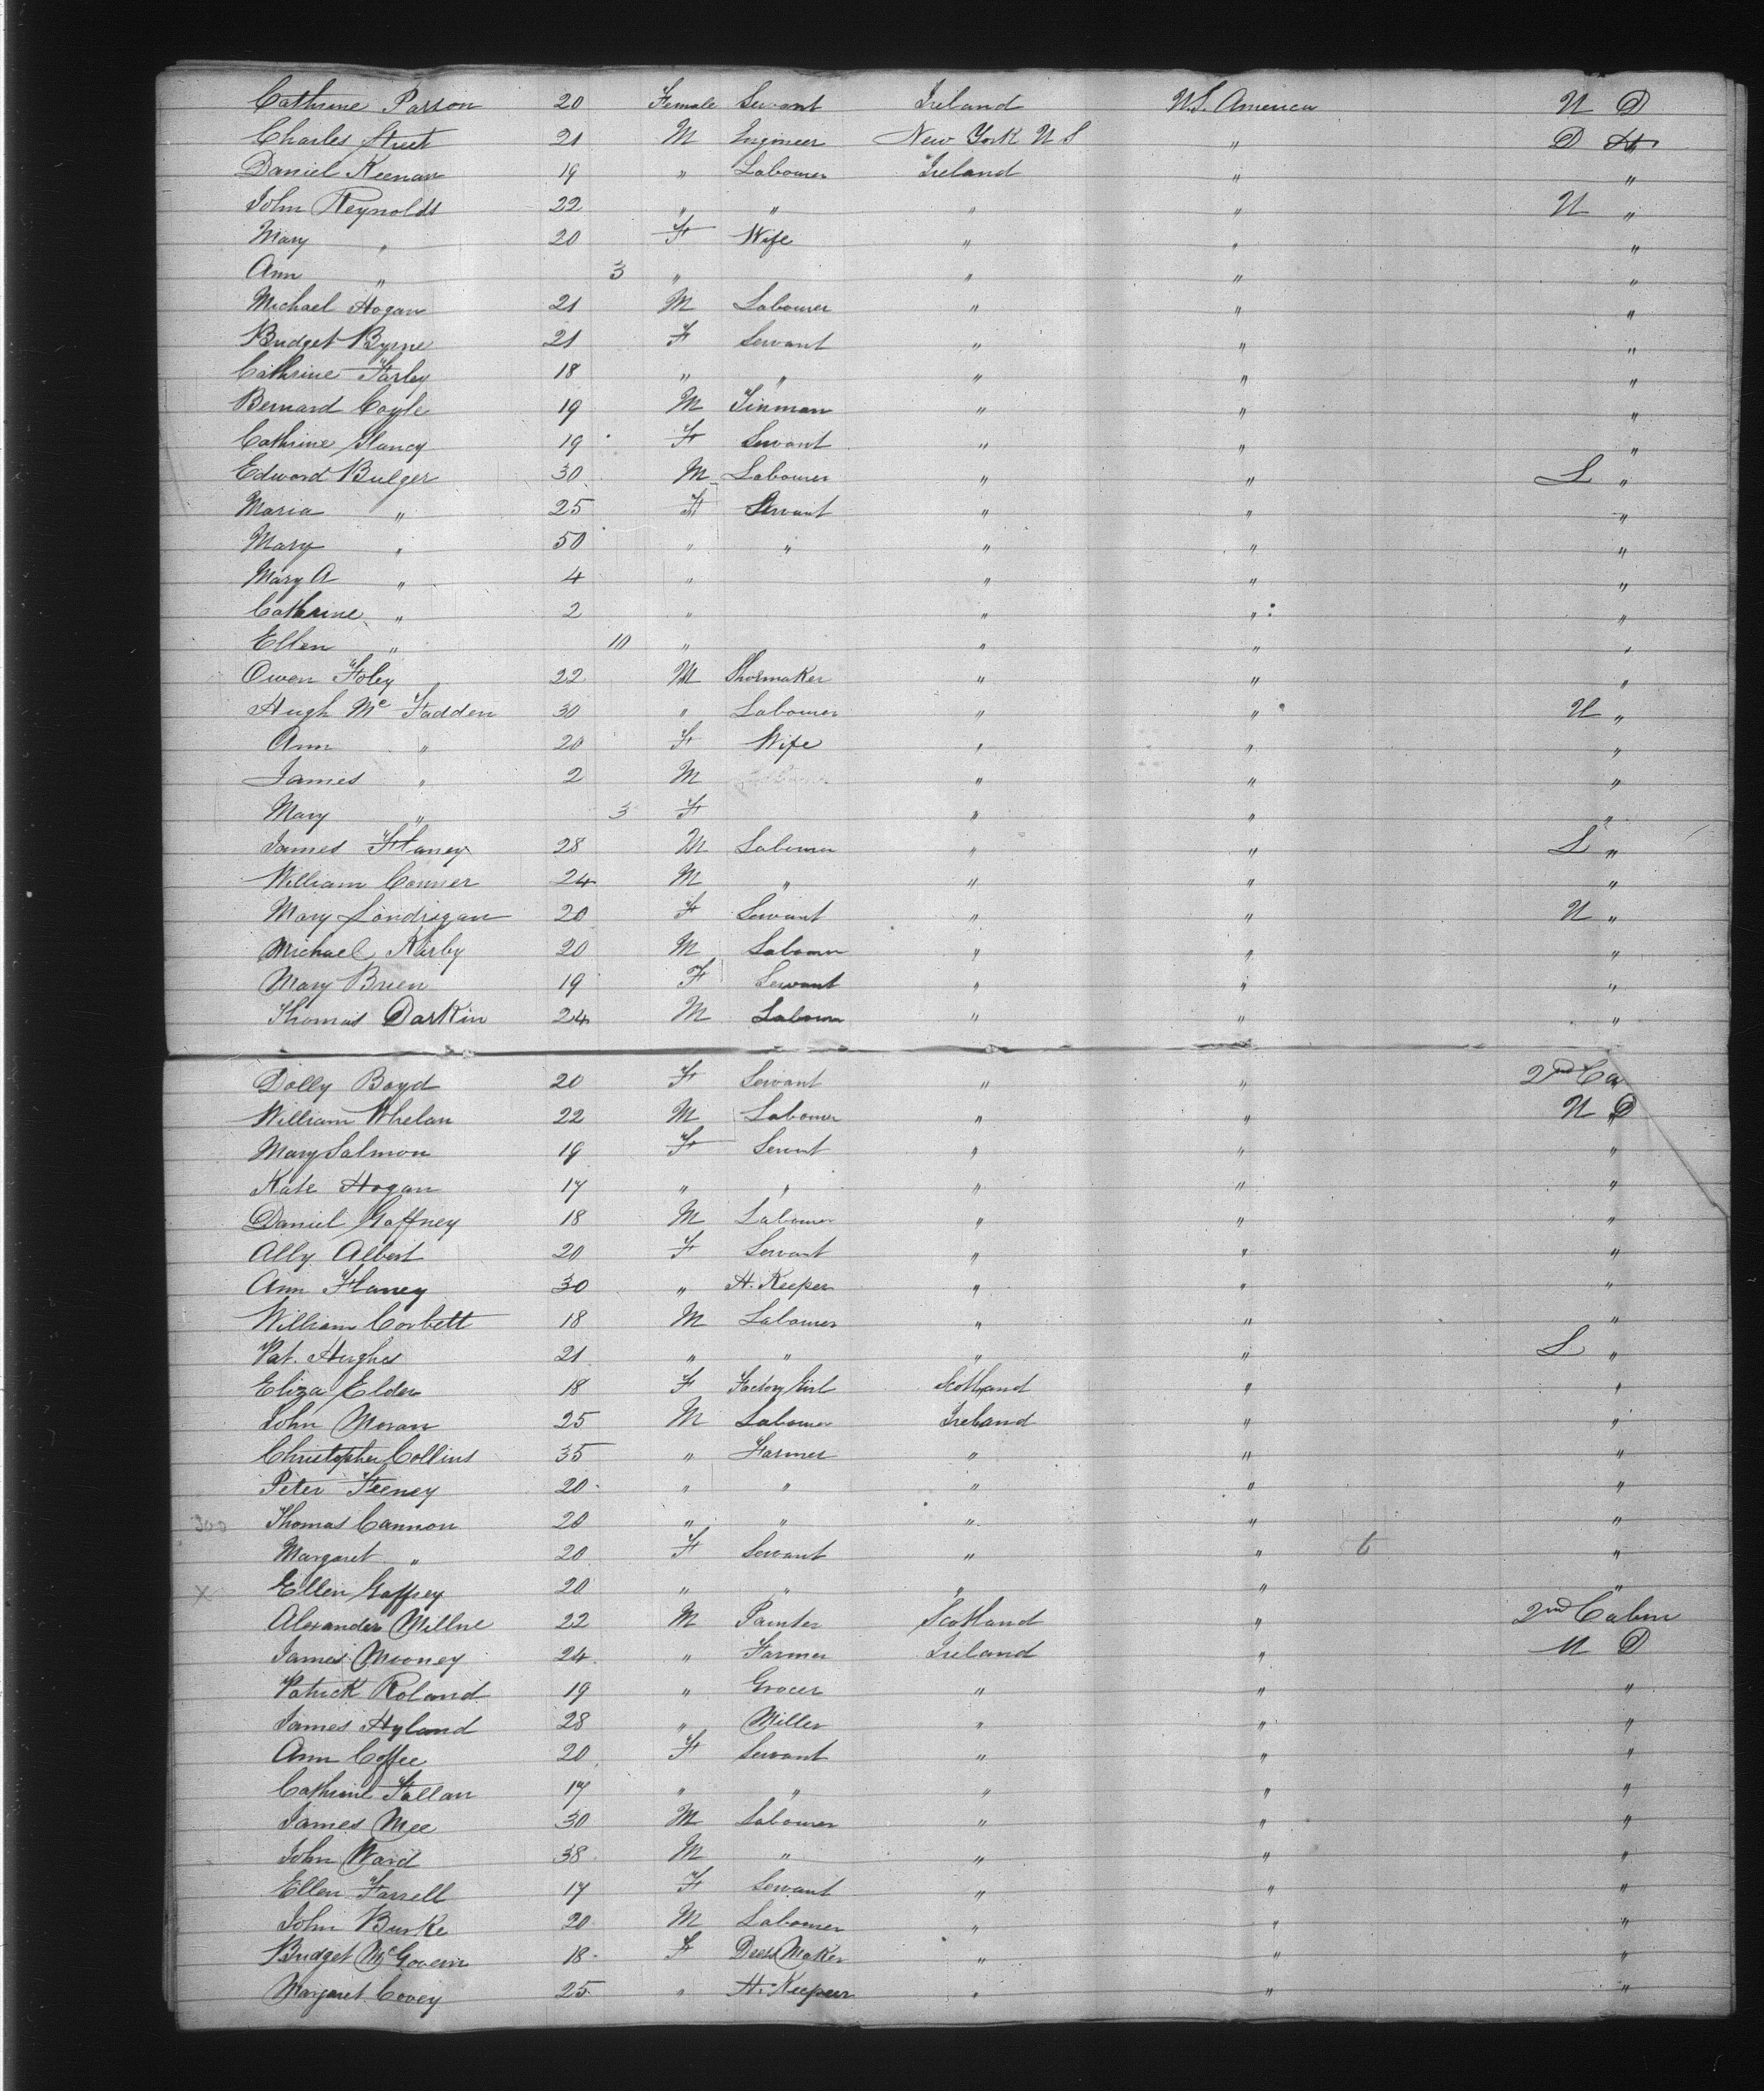 Cathrine Parson 20 Female Servant Ireland U.S. America U D
Charles Street 21 M Engineer New York U S " D
Daniel Keenan 19 " Labourer Ireland " "
John Reynolds 22 " " " " U "
Mary " 20 F Wife " " "
Ann " 3 " " " "
Michael Hogan 21 M Labourer " " "
Bridget Byrne 21 F Servant " " "
Cathrine Farley 18 " " " " "
Bernard Coyle 19 M Tinman " " "
Cathrine Clancy 19 F Servant " " "
Edward Bulger 30 M Labourer " " L "
Maria " 25 F Servant " " "
Mary " 50 " " " " "
Mary A " 4 " " " "
Cathrine " 2 " " " "
Ellen " 10 " " " "
Owen Foley 22 M Shoemaker " " "
Hugh Mc Fadden 30 " Labourer " " U "
Ann " 20 F Wife " " "
James " 2 M " " "
Mary " 3 F " " "
James Flaney 28 M Labourer " " L "
William Conner 24 M " " " "
Mary Londrigan 20 F Servant " " U "
Michael Karby 20 M Labourer " " "
Mary Brien 19 F Servant " " "
Thomas Darkin 24 M Labourer " " "
Dolly Boyd 20 F Servant " " 2nd Ca
William Whelan 22 M Labourer " " U D
Mary Salmon 19 F Servant " " "
Kate Hogan 17 " " " " "
Daniel Gaffney 18 M Labourer " " "
Ally Albert 20 F Servant " " "
Ann Flaney 30 " H. Keeper " " "
William Corbett 18 M Labourer " " "
Pat. Hughes 21 " " " " L "
Eliza Elder 18 F Factory Girl Scotland " "
John Moran 25 M Labourer Ireland " "
Christopher Collins 35 " Farmer " " "
Peter Feeney 20 " " " " "
300 Thomas Cannon 20 " " " " "
Margaret " 20 F Servant " " 6 "
X Ellen Gaffney 20 " " " " "
Alexander Millne 22 M Painter Scotland " 2nd Cabin
James Mooney 24 " Farmer Ireland " U D
Patrick Roland 19 " Grocer " " "
James Hyland 28 " Miller " " "
Ann Coffee 20 F Servant " " "
Cathrine Fallan 17 " " " " "
James Mee 30 M Labourer " " "
John Ward 38 M " " " "
Ellen Farrell 17 F Servant " " "
John Burke 20 M Labourer " " "
Bridget McGovern 18 F Dress Maker " " "
Margaret Covey 25 " H. Keeper " " "